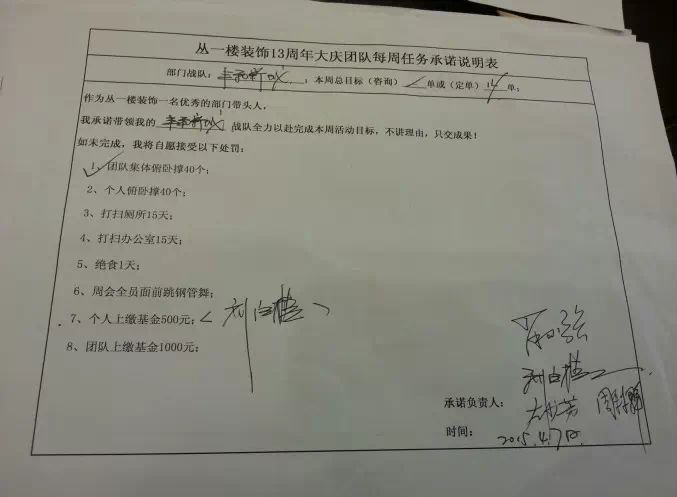 丛一楼装饰13周年大庆团队每周任务承诺说明表
部门战队： ；本周总目标（咨询） 单或（定单）14单；
作为丛一楼装饰一名优秀的部门带头人，
我承诺带领我的 战队全力以赴完成本周活动目标，不讲理由，只交成果！
如未完成，我将自愿接受以下处罚：
1、团队集体俯卧撑40个；
2、个人俯卧撑40个；
3、打扫厕所15天；
4、打扫办公室15天；
5、绝食1天；
6、周会全员面前跳钢管舞；
7、个人上缴基金500元；
8、团队上缴基金1000元；
承诺负责人：
时间： 2015.4.7